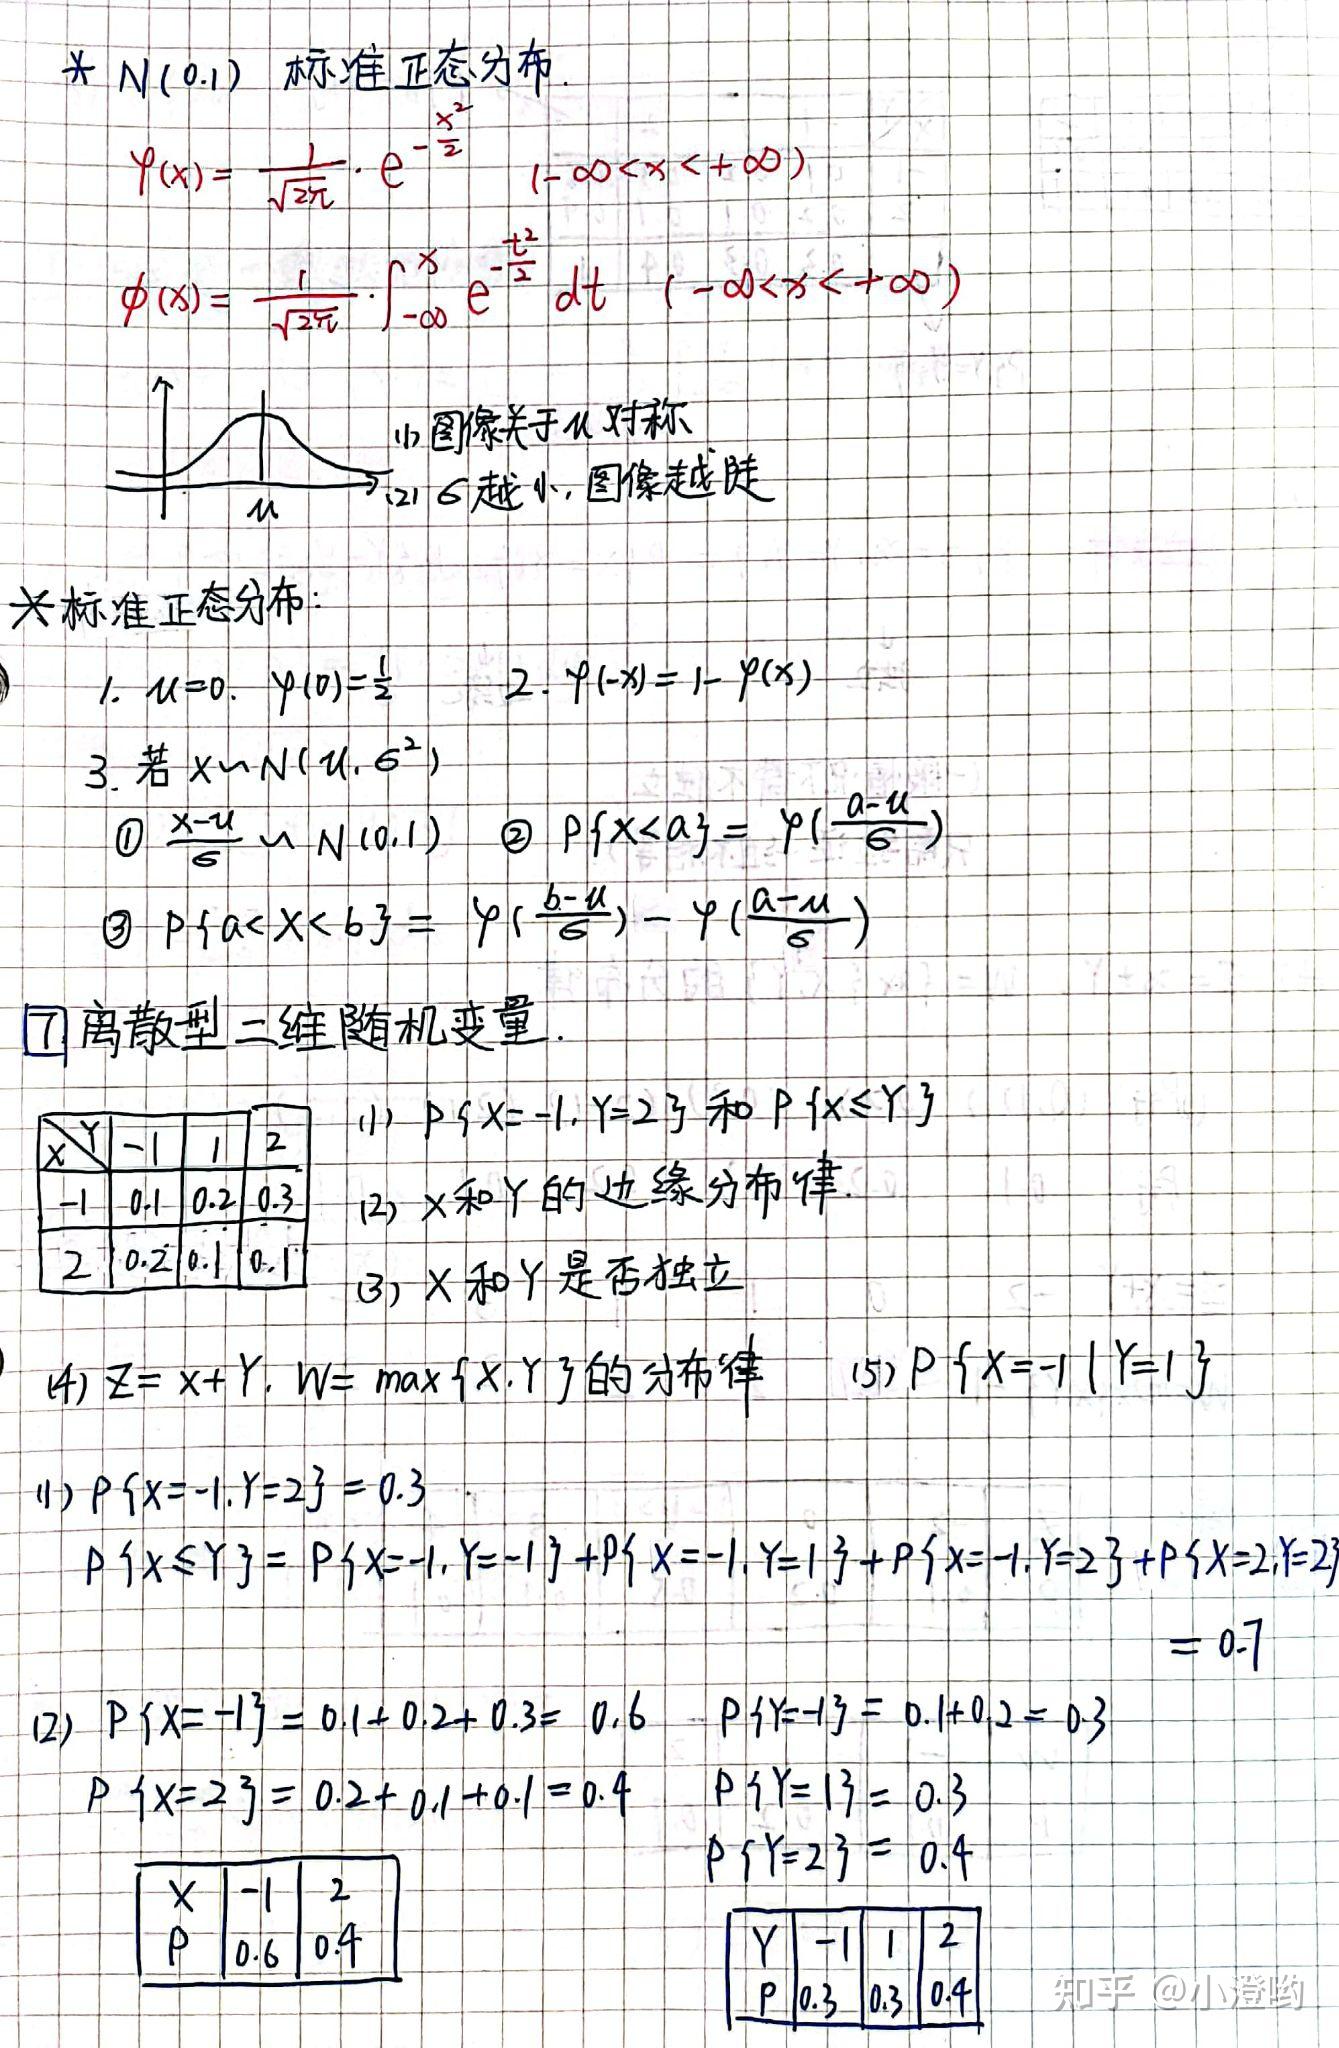 * N(0.1) 标准正态分布.
φ(x) = 1/√2π · e^(-x²/2) (-∞<x<+∞)
ϕ(x) = 1/√2π · ∫_{-∞}^{x} e^(-t²/2) dt (-∞<x<+∞)
(1) 图像关于μ对称
(2) σ越小, 图像越陡
μ
*标准正态分布:
1. μ=0. φ(0)=1/2 2. φ(-x)=1-φ(x)
3. 若 X~N(μ.σ²)
① (x-μ)/σ ~ N(0.1) ② P{X<a} = φ((a-μ)/σ)
③ P{a<X<b} = φ((b-μ)/σ) - φ((a-μ)/σ)
7 离散型二维随机变量.
X Y -1 1 2
-1 0.1 0.2 0.3
2 0.2 0.1 0.1
(1) P{X=-1.Y=2} 和 P{X≤Y}
(2) X和Y的边缘分布律.
(3) X和Y是否独立
(4) Z=X+Y. W=max{X.Y}的分布律 (5) P{X=-1|Y=1}
(1) P{X=-1.Y=2}=0.3
P{X≤Y} = P{X=-1.Y=-1}+P{X=-1.Y=1}+P{X=-1.Y=2}+P{X=2.Y=2}
= 0.7
(2) P{X=-1} = 0.1+0.2+0.3= 0.6 P{Y=-1} = 0.1+0.2=0.3
P{X=2} = 0.2+0.1+0.1=0.4 P{Y=1} = 0.3
P{Y=2} = 0.4
X -1 2
P 0.6 0.4
Y -1 1 2
P 0.3 0.3 0.4
知乎 @小澄哟